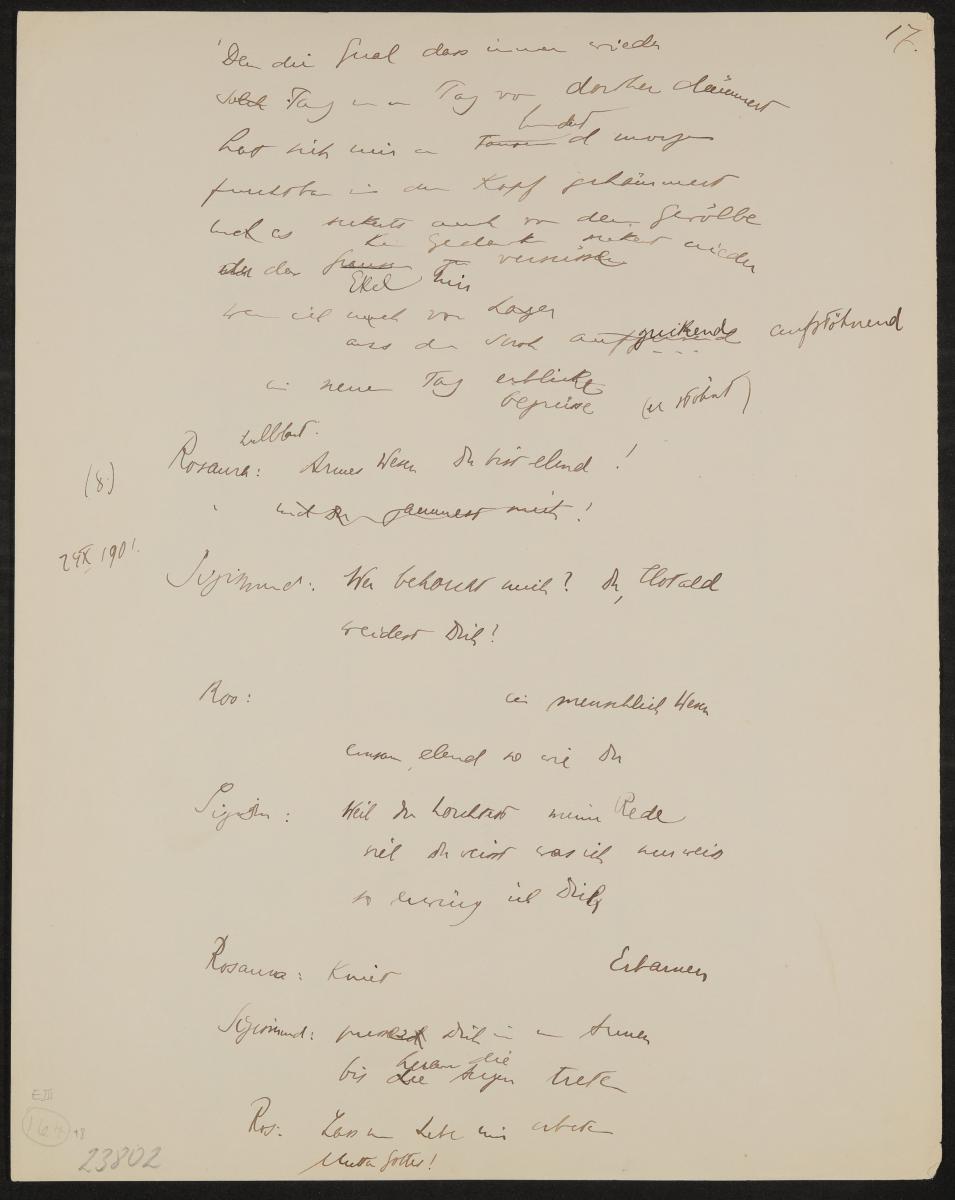 17.
Den die Qual dass immer wieder
solch Tag um Tag von dorther dämmert
hundert
hat sich mir an Tausend morgen
furchtbar in den Kopf gehämmert
und es sickert auch von dem Gewölbe
kein Gedanke sickert nieder
der
Ekel hin
wenn ich mich vom Lager
aus dem Stroh aufstöhnend
ein neuen Tag erblicke
begrüsse (er stöhnt)
halblaut.
Rosaura: Armes Wesen Du bist elend!
(8)
und Du jammerst mich!
24 IX 1901.
Sigismund: Wer behorcht mich? Du, Clotald
weidest Dich!
Ros: ein menschlich Wesen
einsam, elend so wie Du
Sigism: Weil Du horchtest meine Rede
weil Du weisst was ich nun weiss
so erwürg ich Dich
Rosaura: Kniet Erbarmen
Sigismund: Dich in den Armen
heraus die
bis die Augen treten
Ros: Lass um Liebe mich erbeten
Mutter Gottes!
E III
164
48
23802